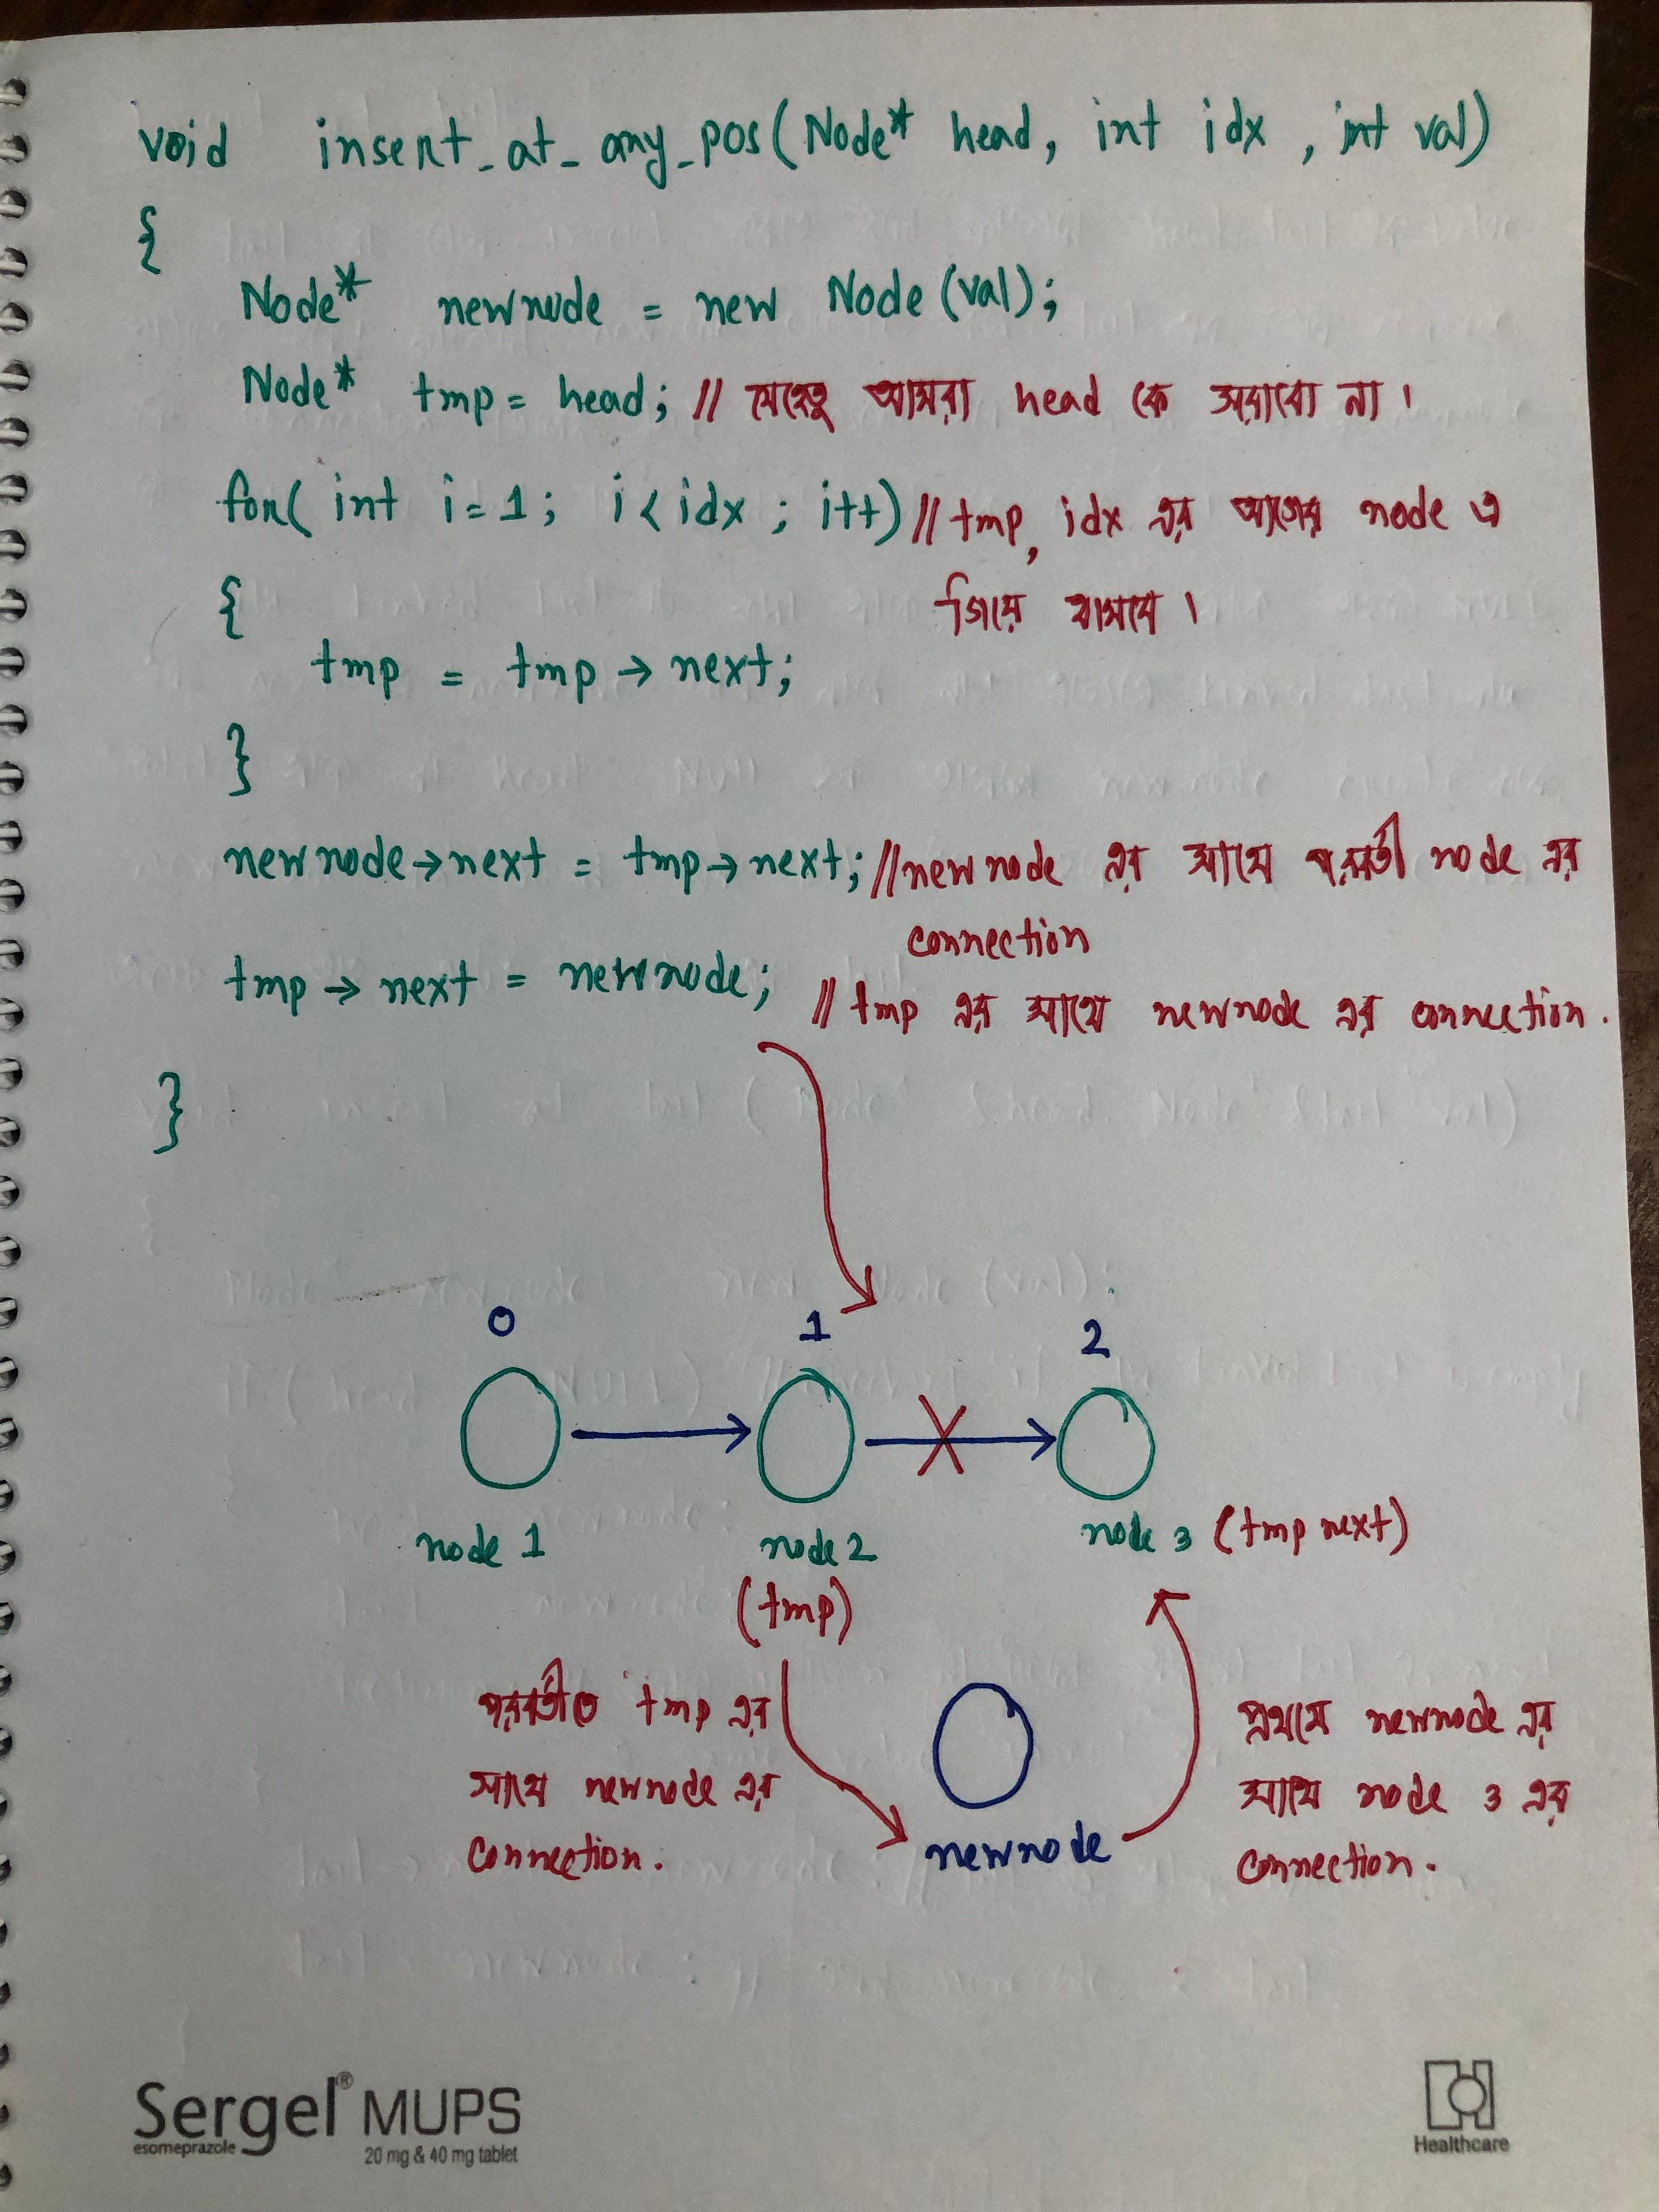 void insert_at_any_pos(Node* head, int idx, int val)
{
Node* newnode = new Node(val);
Node* tmp = head; // যেহেতু আমরা head কে সরাবো না।
for( int i=1; i<idx; i++) // tmp, idx এর আগের node এ
{ গিয়ে থামবে।
tmp = tmp → next;
}
newnode→next = tmp→next; //newnode এর সাথে পরবর্তী node এর
connection
tmp → next = newnode; // tmp এর সাথে newnode এর connection.
}
0 1 2
node 1 node 2 node 3 (tmp next)
(tmp)
পরবর্তীতে tmp এর
সাথে newnode এর
connection.
newnode
প্রথমে newnode এর
সাথে node 3 এর
connection.
Sergel® MUPS
esomeprazole
20 mg & 40 mg tablet
Healthcare